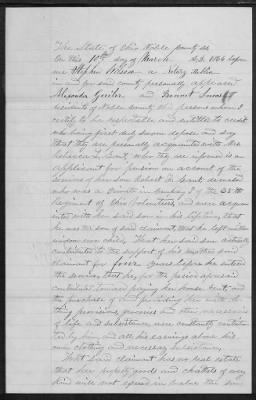 The State of Ohio Noble County ss
On this 10th day of March A.D. 1866 before
me Stephen Wilson a Notary Public
in and for said county personally appeared
and
residents of Noble County Ohio persons whom I
certify to be respectable and entitled to credit
who being first duly sworn depose and say
that they are personally acquainted with Mrs
Rebecca who they are informed is an
applicant for pension on account of the
services of her son Robert
who was a Private in Company of the
Regiment of Ohio Volunteers, and were acquain
ted with her said son in his lifetime, that
he was the son of said claimant, that he left neither
widow nor child, That her said son actually
contributed to the support of his mother said
claimant for years before he entered
the service, that he, for the period aforesaid
contributed toward paying her house rent, and
the purchase of and providing her with
provisions, groceries and other necessaries
of life and subsistence, were contribu
ted by him and all his earnings above his
own clothing and necessary subsistence,
That said claimant has no real estate
that her property goods and chattels of every
kind will not exceed in value the sum